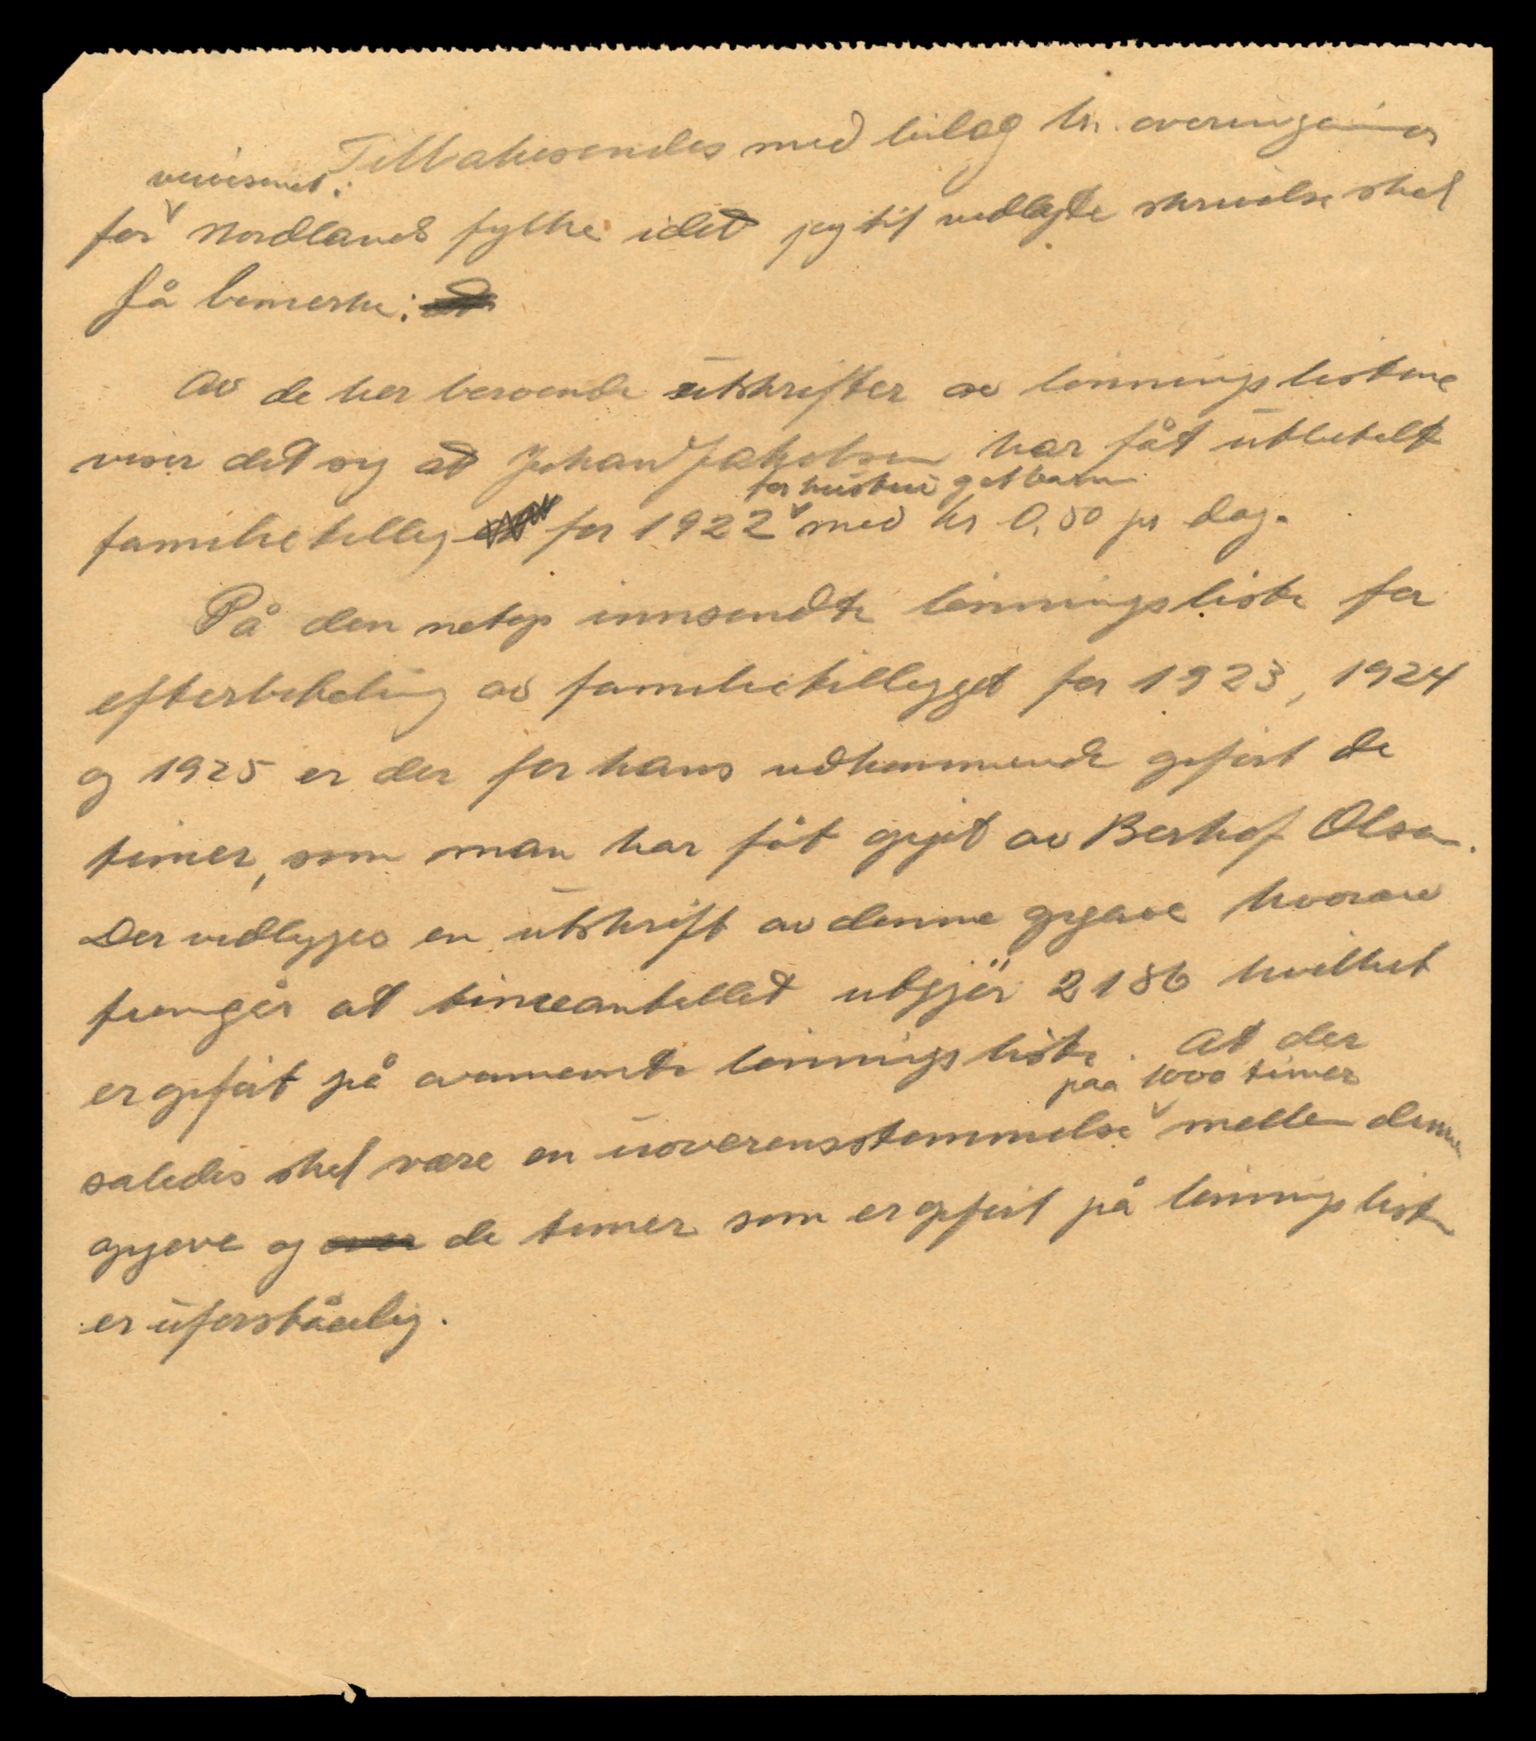 Tilbakesendes med bilag hr. overingeniør
veivesenet i
for Nordlands fylke idet jeg til vedlagte skrivelse skal
få bemerke:
Av de her beroende utskrifter av lønningslistene
viser det sig at Johan Jakobsen har fåt utbetalt
for hustru og et barn
familietillæg for 1922 med kr 0,50 pr dag.
På den netop innsendte lønningsliste for
efterbetaling av familietillegget for 1923, 1924
og 1925 er der for hans vedkommende opført de
timer, som man har fåt opgit av Olsen.
Der vedlegges en utskrift av denne opgave hvorav
fremgår at timeantallet utgjør 2186 hvilket
er opført på ovannevnte lønningsliste. At der
paa 1000 timer
saledes skal være en uoverensstemmelse mellem denne
opgave og de timer som er opført på lønningsliste
er uforståelig.